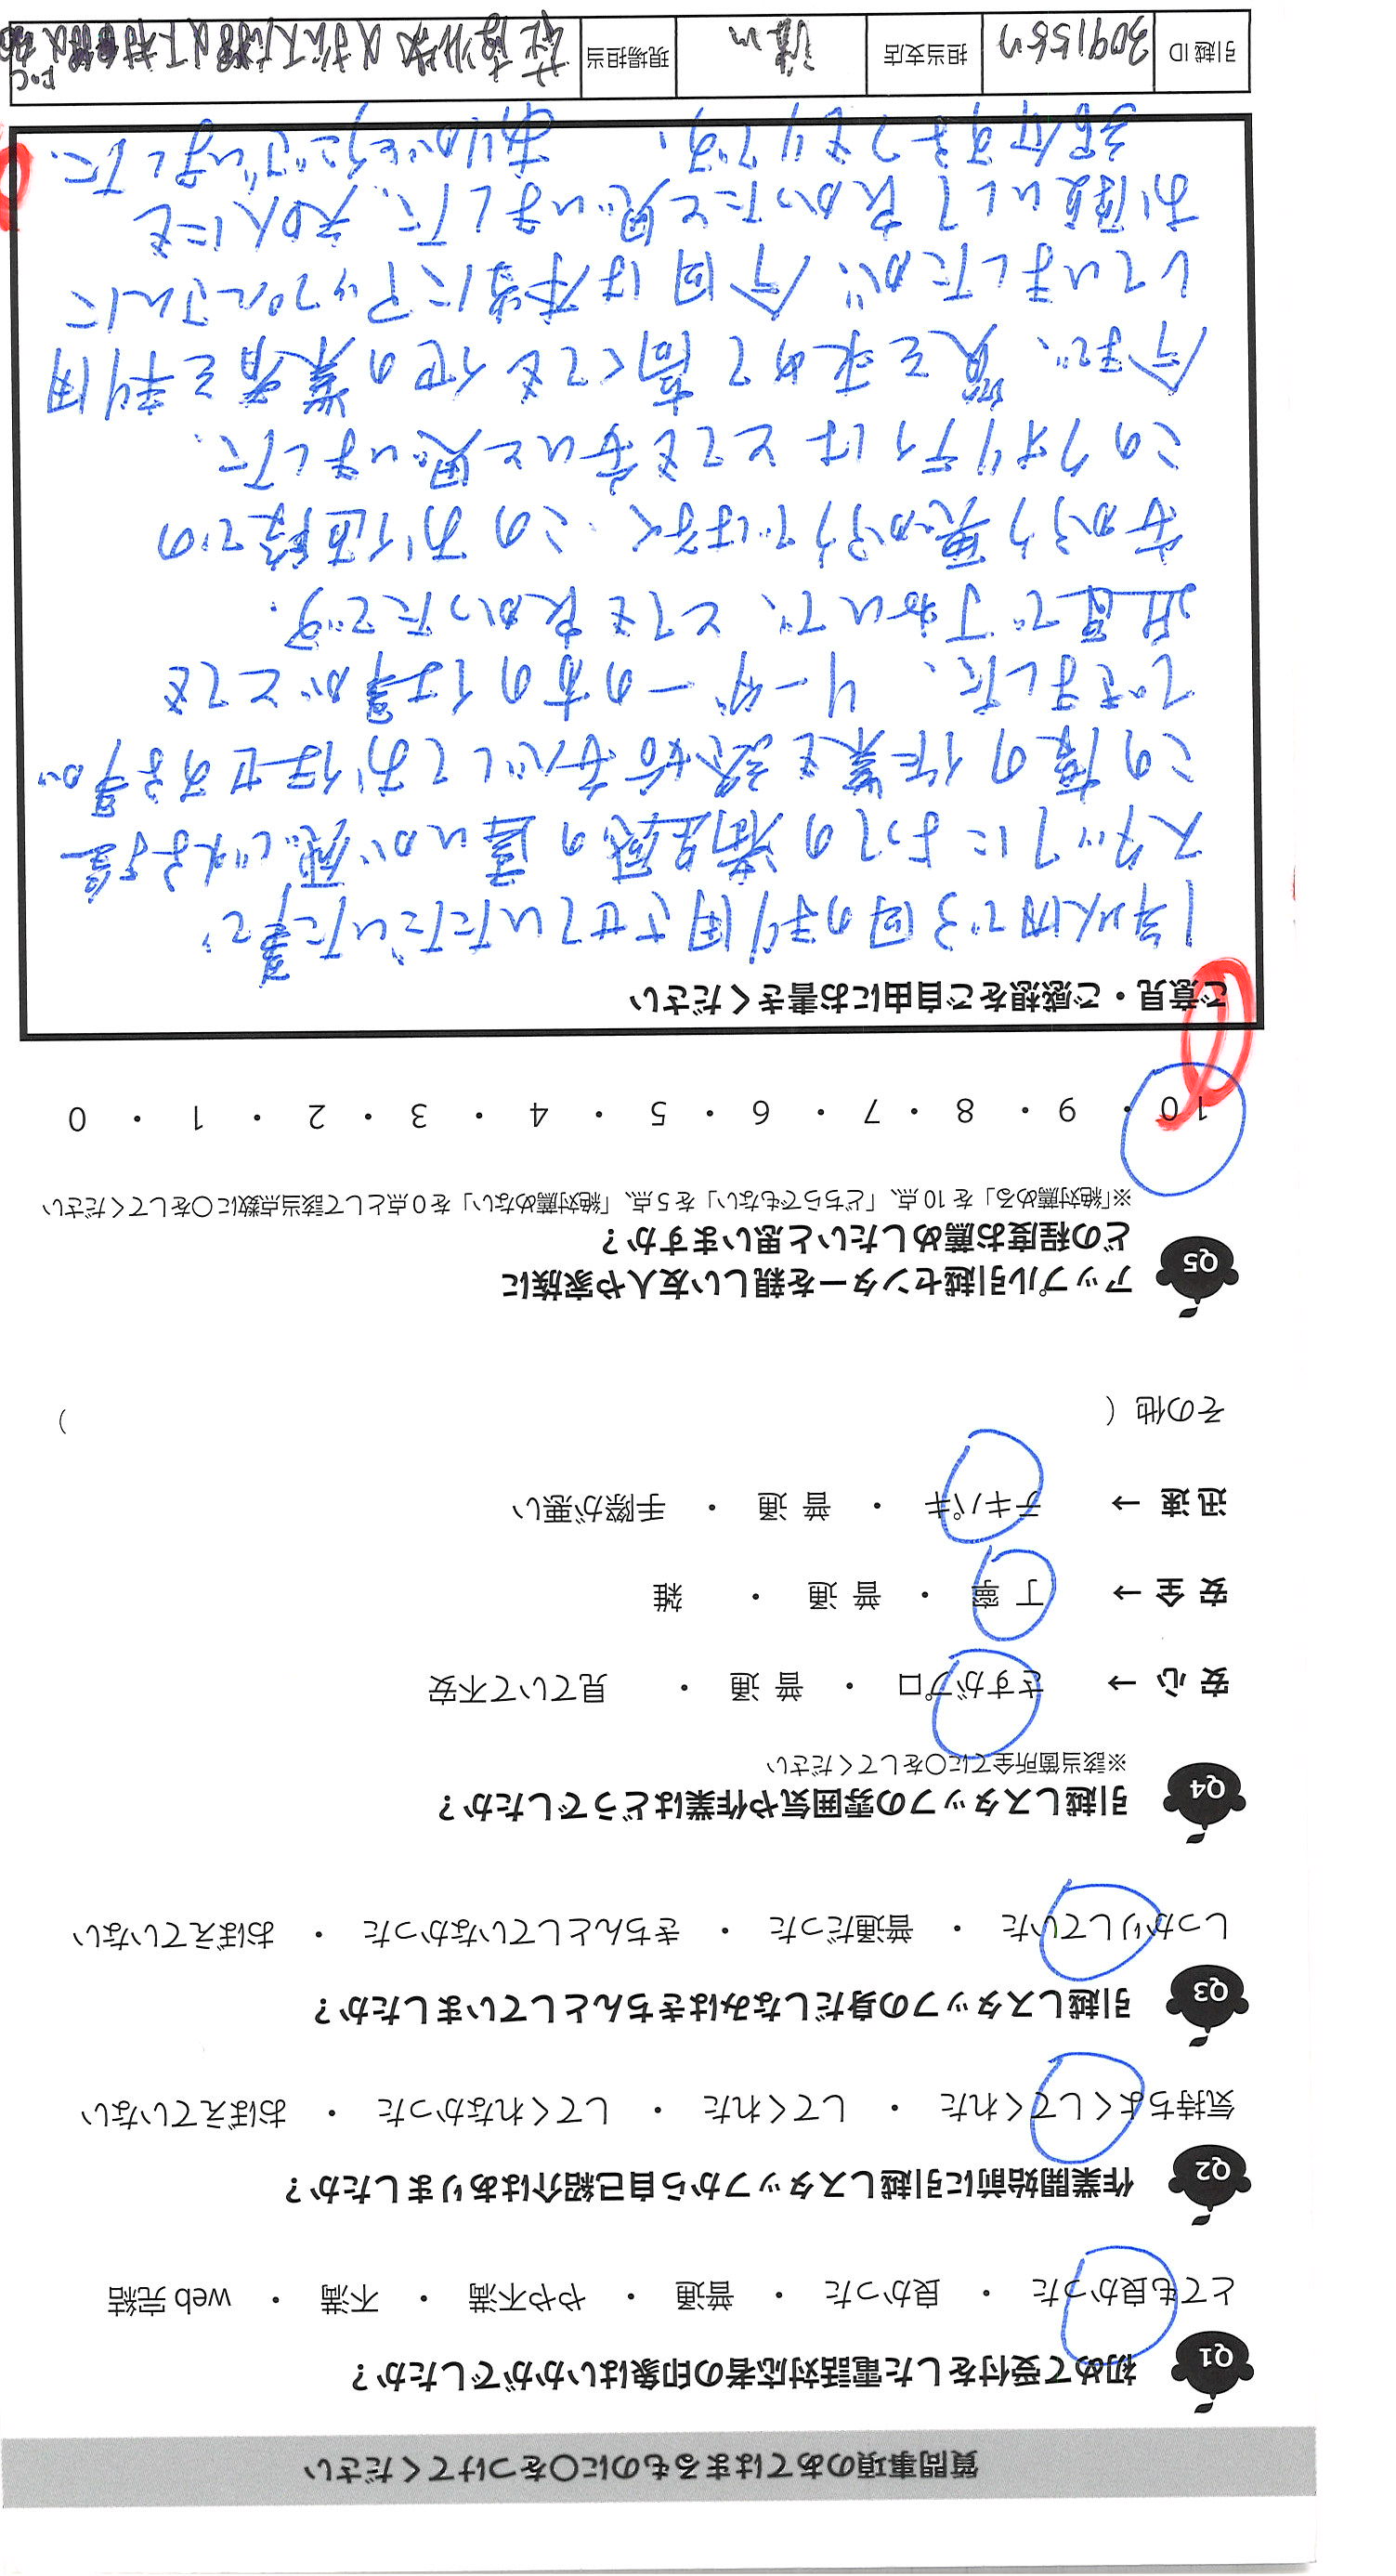 質問事項のあてはまるものに○をつけてください
Q1 初めて受付をした電話対応者の印象はいかがでしたか？
とても良かった ・ 良かった ・ 普通 ・ やや不満 ・ 不満 ・ web 完結
Q2 作業開始前に引越しスタッフから自己紹介はありましたか？
気持ちよくしてくれた ・ してくれた ・ してくれなかった ・ おぼえていない
Q3 引越しスタッフの身だしなみはきちんとしていましたか？
しっかりしていた ・ 普通だった ・ きちんとしていなかった ・ おぼえていない
Q4 引越しスタッフの雰囲気や作業はどうでしたか？
※該当箇所全てに○をしてください
安 心 → さすがプロ ・ 普 通 ・ 見ていて不安
安 全 → 丁 寧 ・ 普 通 ・ 雑
迅 速 → テキパキ ・ 普 通 ・ 手際が悪い
その他（ ）
Q5 アップル引越センターを親しい友人や家族に
どの程度お薦めしたいと思いますか？
※「絶対薦める」を 10 点、「どちらでもない」を 5 点、「絶対薦めない」を 0 点として該当点数に○をしてください
10 ・ 9 ・ 8 ・ 7 ・ 6 ・ 5 ・ 4 ・ 3 ・ 2 ・ 1 ・ 0
ご意見・ご感想をご自由にお書きください
1年以内で3回の利用させていただいた事で
スタッフによっての満足感の違いが感じれます
この度の作業も終始安心してお任せする事が
できました、リーダーの方の仕事がとても
迅速で丁ねいで、とても良かったです。
安かろう悪かろうではなく、このお値段での
このクオリティはとても安いと思いました。
今まで、質を求めて高くても他の業者を利用
していましたが、今回は本当にアップルさんに
お任せして良かったと思いました、知人にも
紹介するつもりです、ありがとうございました、
引越 ID 3091556 担当支店 現場担当